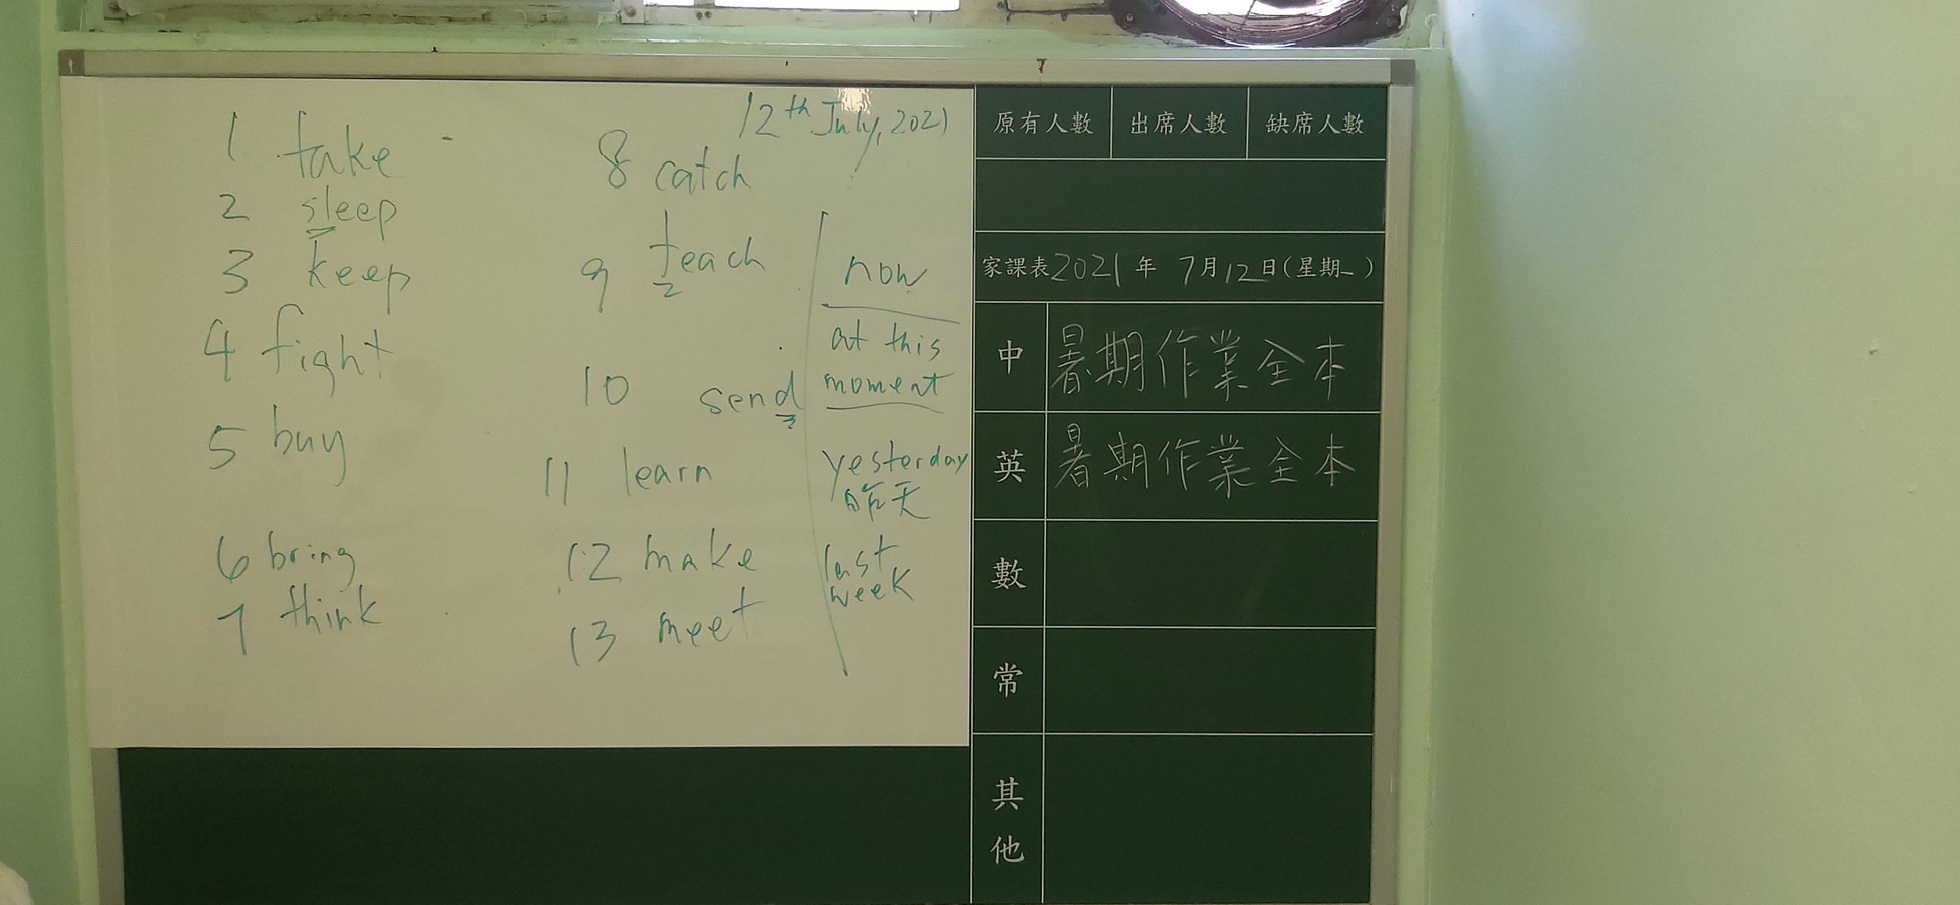 12th July, 2021
1 take
2 sleep
3 keep
4 fight
5 buy
6 bring
7 think
8 catch
9 teach
10 send
11 learn
12 make
13 meet
now
at this
moment
yesterday
昨天
last
week
原有人數 出席人數 缺席人數
家課表2021年 7月12日(星期一)
中 暑期作業全本
英 暑期作業全本
數
常
其他